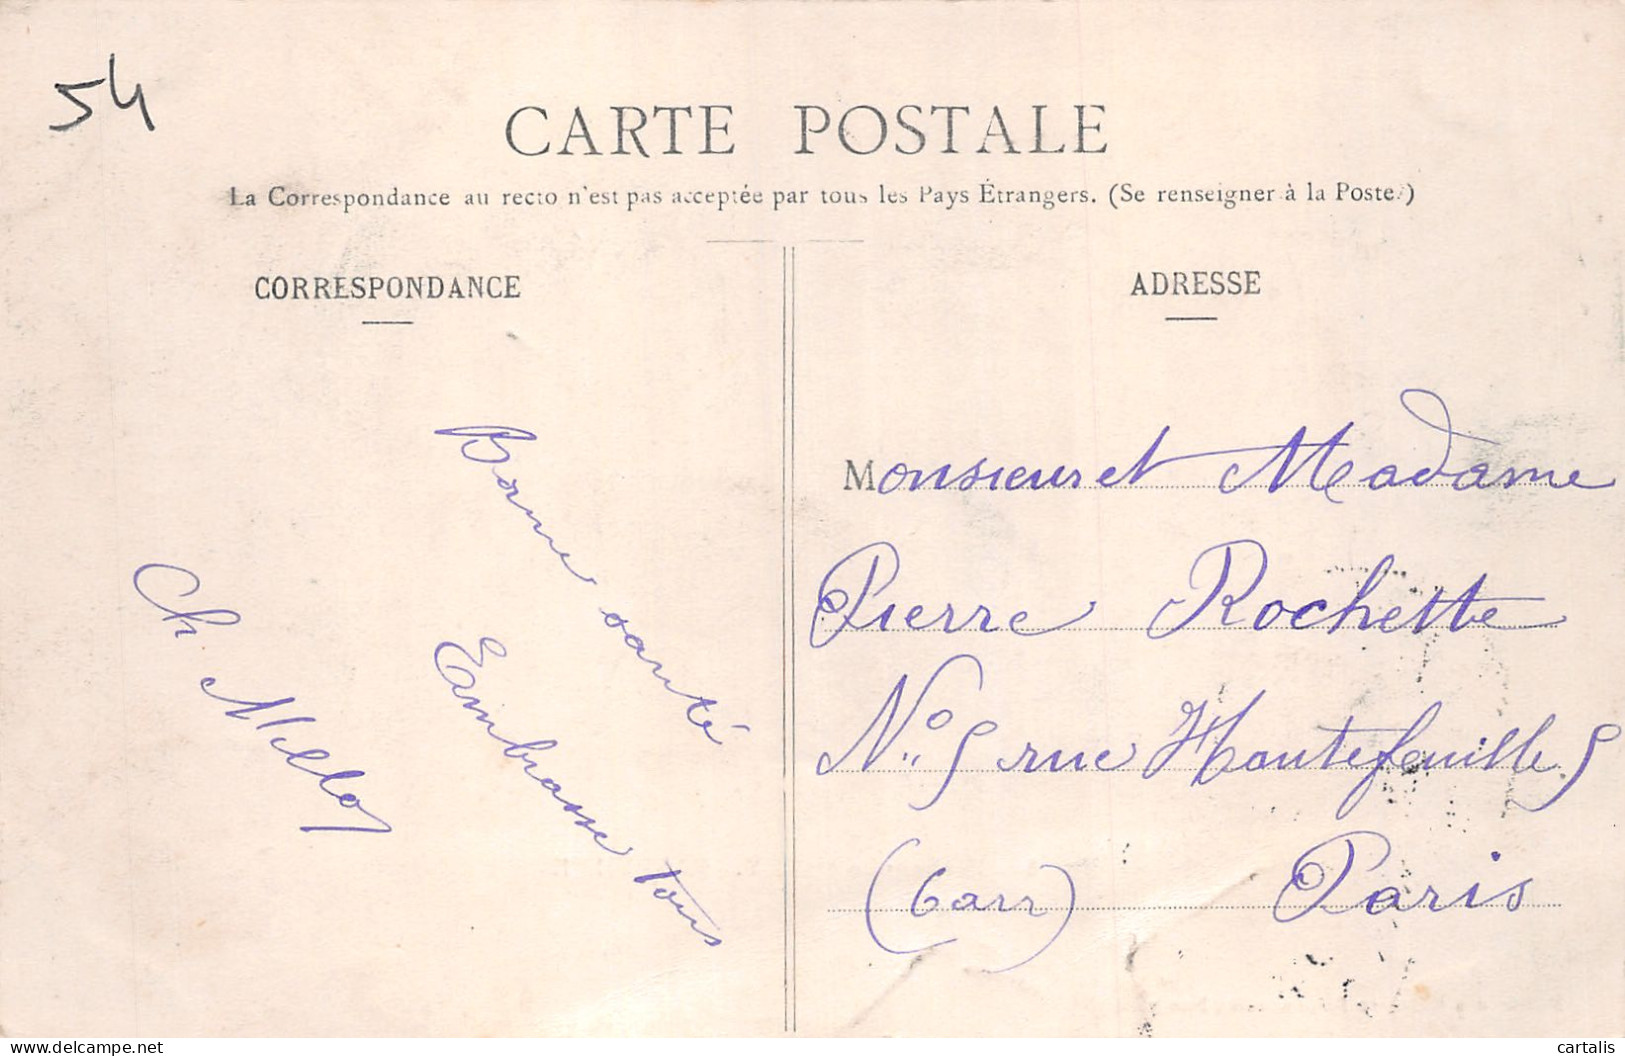 54
CARTE POSTALE
La Correspondance au recto n'est pas acceptée par tous les Pays Étrangers. (Se renseigner à la Poste.)
CORRESPONDANCE
Bonne santé
Embrasse tous
Ch. Millo
ADRESSE
Monsieur et Madame
Pierre Rochette
N° 5 rue Hautefeuille 5
(6 arr) Paris
delcampe.net
cartalis